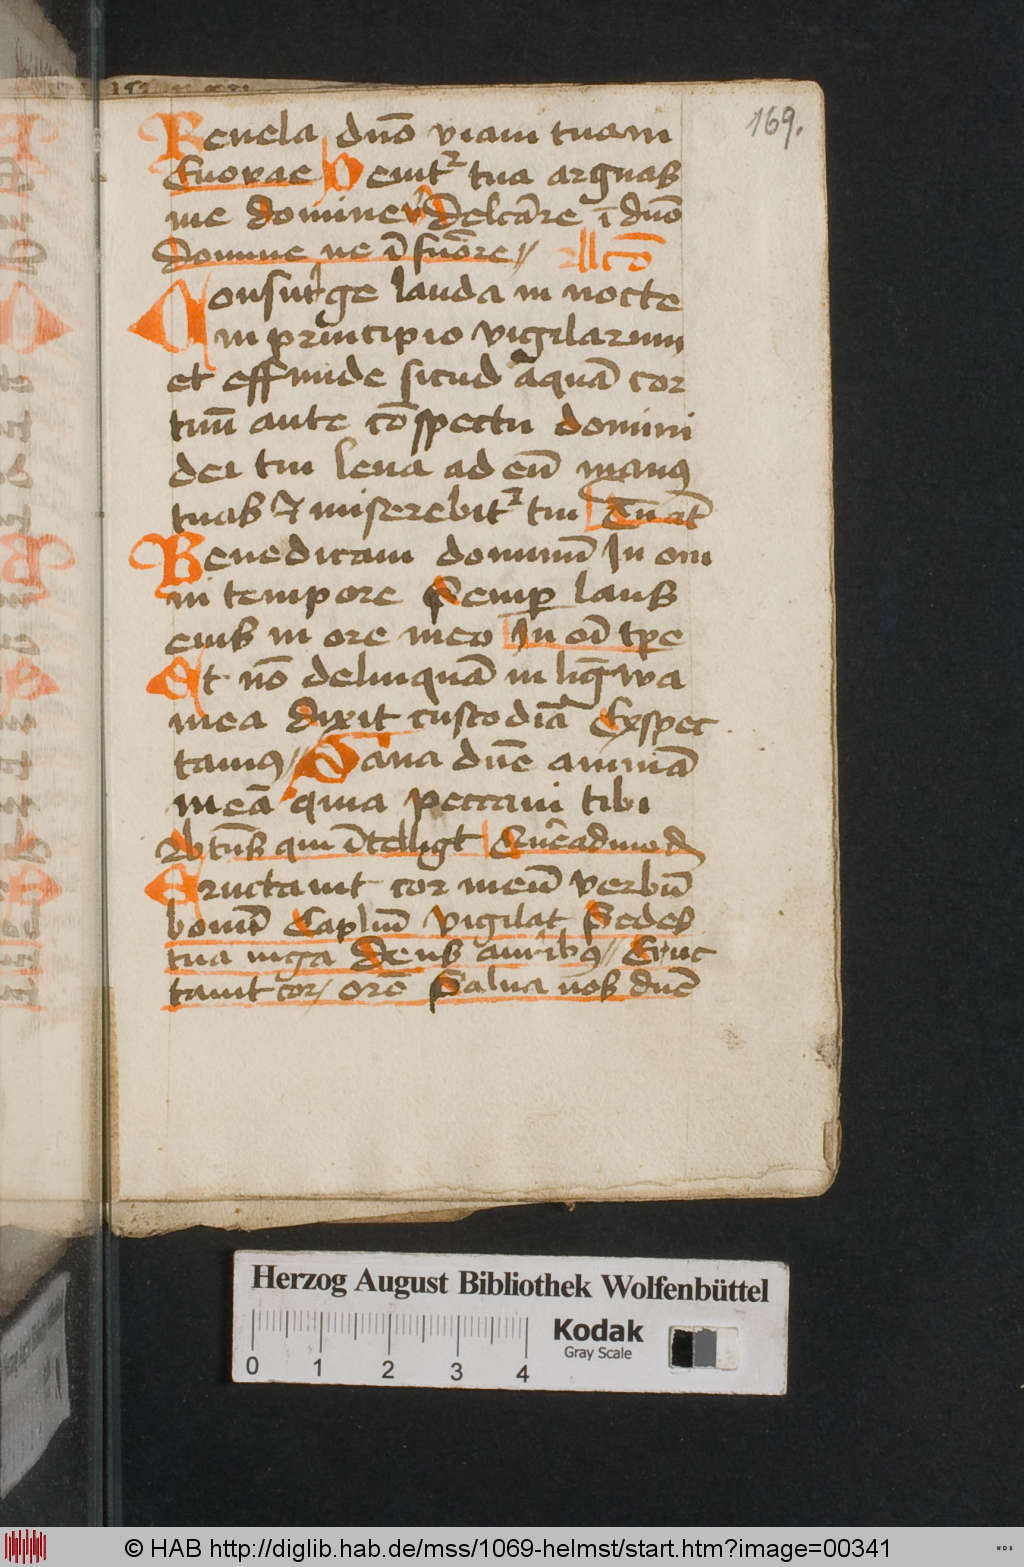 169.
Reuela dño viam tuam
Euouae Ne
me domine v̓ Delcāre ī dño
Domine ne ī furore
Consurge lauda in nocte
in principio vigilarum
et effunde sicud aquā cor
tuū ante cōspectu domini
dei tui leua ad eū manꝰ
tuas ⁊ miserebitᷣ tui Tu aūt
Benedicam dominū In om
ni tempore Semꝑ laus
eius in ore meo In oī tꝑe
Et nō delinquā in ligwa
mea dixit custodiā Exspec
tauiꝰ Sana dñe animā
meā quia peccaui tibi
qui ītelligt Quēadmod
Eructauit cor meū verbū
bonū Caplm̄ vigilat Sedes
tua Deus auribꝰ Eruc
tauit cor orō Salua nos dñe
Herzog August Bibliothek Wolfenbüttel
Kodak
Gray Scale
0 1 2 3 4
© HAB http://diglib.hab.de/mss/1069-helmst/start.htm?image=00341